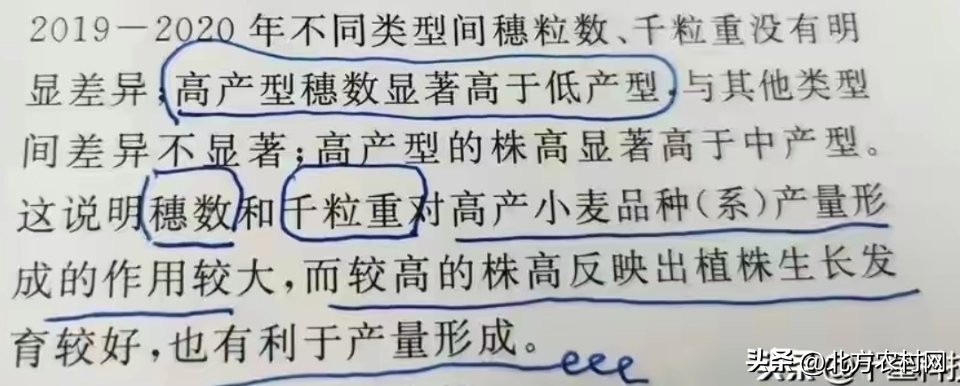 2019—2020年不同类型间穗粒数、千粒重没有明
显差异,高产型穗数显著高于低产型,与其他类型
间差异不显著;高产型的株高显著高于中产型。
这说明穗数和千粒重对高产小麦品种(系)产量形
成的作用较大,而较高的株高反映出植株生长发
育较好,也有利于产量形成。
头条@北方农村网